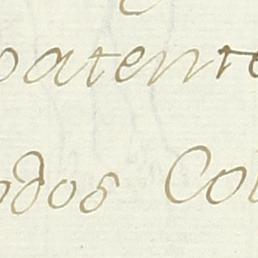 patente
odos Col